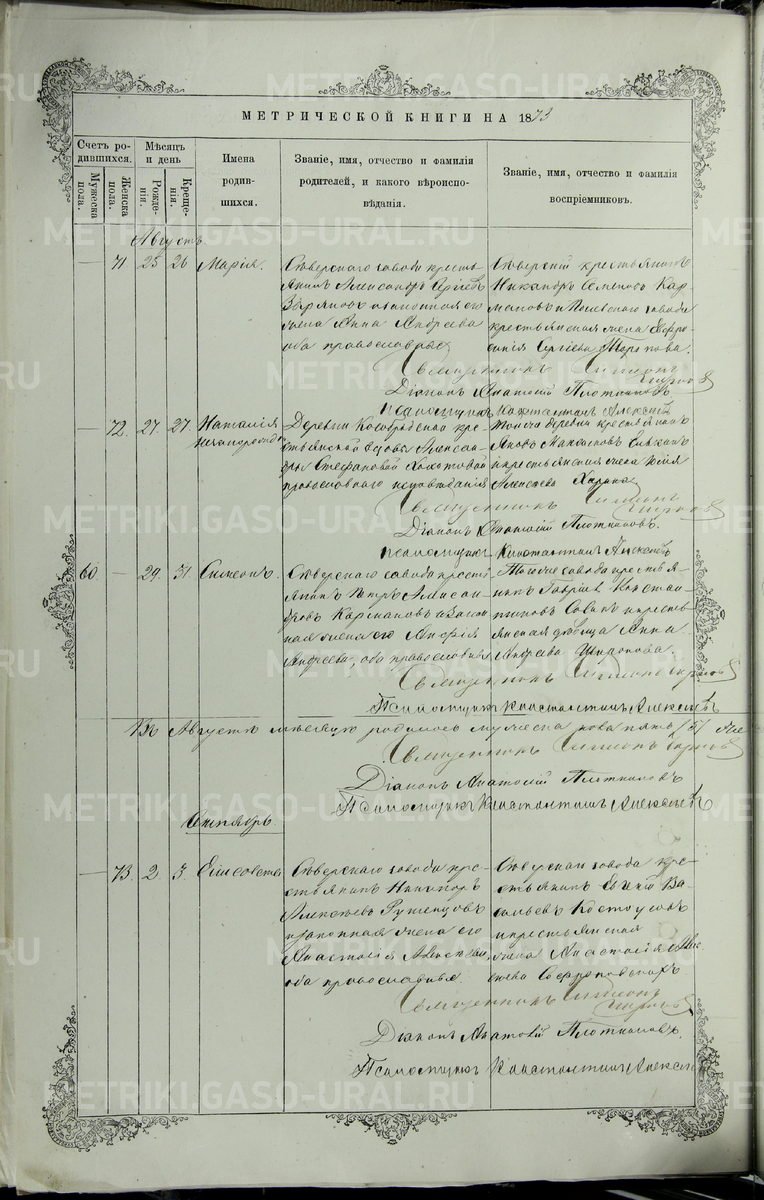 МЕТРИЧЕСКОЙ КНИГИ НА 1873
Счетъ родившихся.
Мужеска пола.
Женска пола.
Мѣсяцъ и день
Рожденія.
Крещенія.
Имена родившихся.
Званіе, имя, отчество и фамилія родителей, и какого вѣроисповѣданія.
Званіе, имя, отчество и фамилія воспріемниковъ.
Августъ
— 71 25 26 Марія.
Сѣверскаго завода кресть-
янинъ Александръ
и законная его
жена Анна Андреева
оба православные
Сѣверскій крестьянинъ
Никандръ Семеновъ Кар-
мановъ и Полевскаго завода
крестьянская жена Евфро-
синія Сергѣева Торопова.
Священникъ Симеонъ
Діаконъ Анатолій Плотниковъ
Псаломщикъ Константинъ Алексѣевъ
— 72. 27. 27. Наталія
незаконорожден
Деревни Кособродской кре-
стьянской вдовы Алексан-
дры Стефановой
православнаго исповѣданія
Тойже деревни крестьянинъ
Яковъ Максимовъ
и крестьянская жена Юлія
Алексѣева
Священникъ Симеонъ
Діаконъ Анатолій Плотниковъ.
Псаломщикъ Константинъ Алексѣевъ
60 — 29. 31. Симеонъ.
Сѣверскаго завода кресть
янинъ Петръ Алексан-
дровъ Кармановъ и закон
ная жена его
Андреева, оба православные
Тогоже завода крестья-
нинъ Гавріилъ Констан-
тиновъ и кресть-
янская дѣвица Анна
Андреева
Священникъ Симеонъ
Псаломщикъ Константинъ Алексѣевъ
Въ Августѣ мѣсяцѣ родилось мужеска пола пять /5/
Священникъ Симеонъ
Діаконъ Анатолій Плотниковъ
Псаломщикъ Константинъ Алексѣевъ
Сентябрь
— 73. 2. 3. Елисавета
Сѣверскаго завода кре-
стьянинъ Никифоръ
Алексѣевъ
и законная жена его
Анастасія
оба православные.
Сѣверскаго завода кре-
стьянинъ Евгеній Ва-
сильевъ Костоусовъ
и крестьянская
жена Анастасія
Священникъ Симеонъ
Діаконъ Анатолій Плотниковъ.
Псаломщикъ Константинъ Алексѣевъ
METRIKI.GASO-URAL.RU